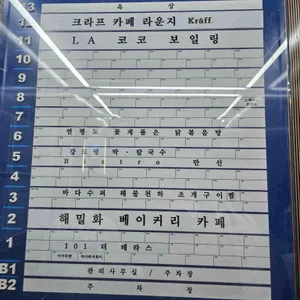 13 옥상
12 크라프 카페 라운지 Kräff
11 LA 코코 보일링
10
9
8
7
6 연평도 꽃게품은 닭볶음탕
5 강도령 박·칼국수
Bistro 만선
3 바다수퍼 해물천하 조개구이찜
2 해밀화 베이커리 카페
1 101 더 테라스
B1 관리사무실 / 주차장
B2 주차장